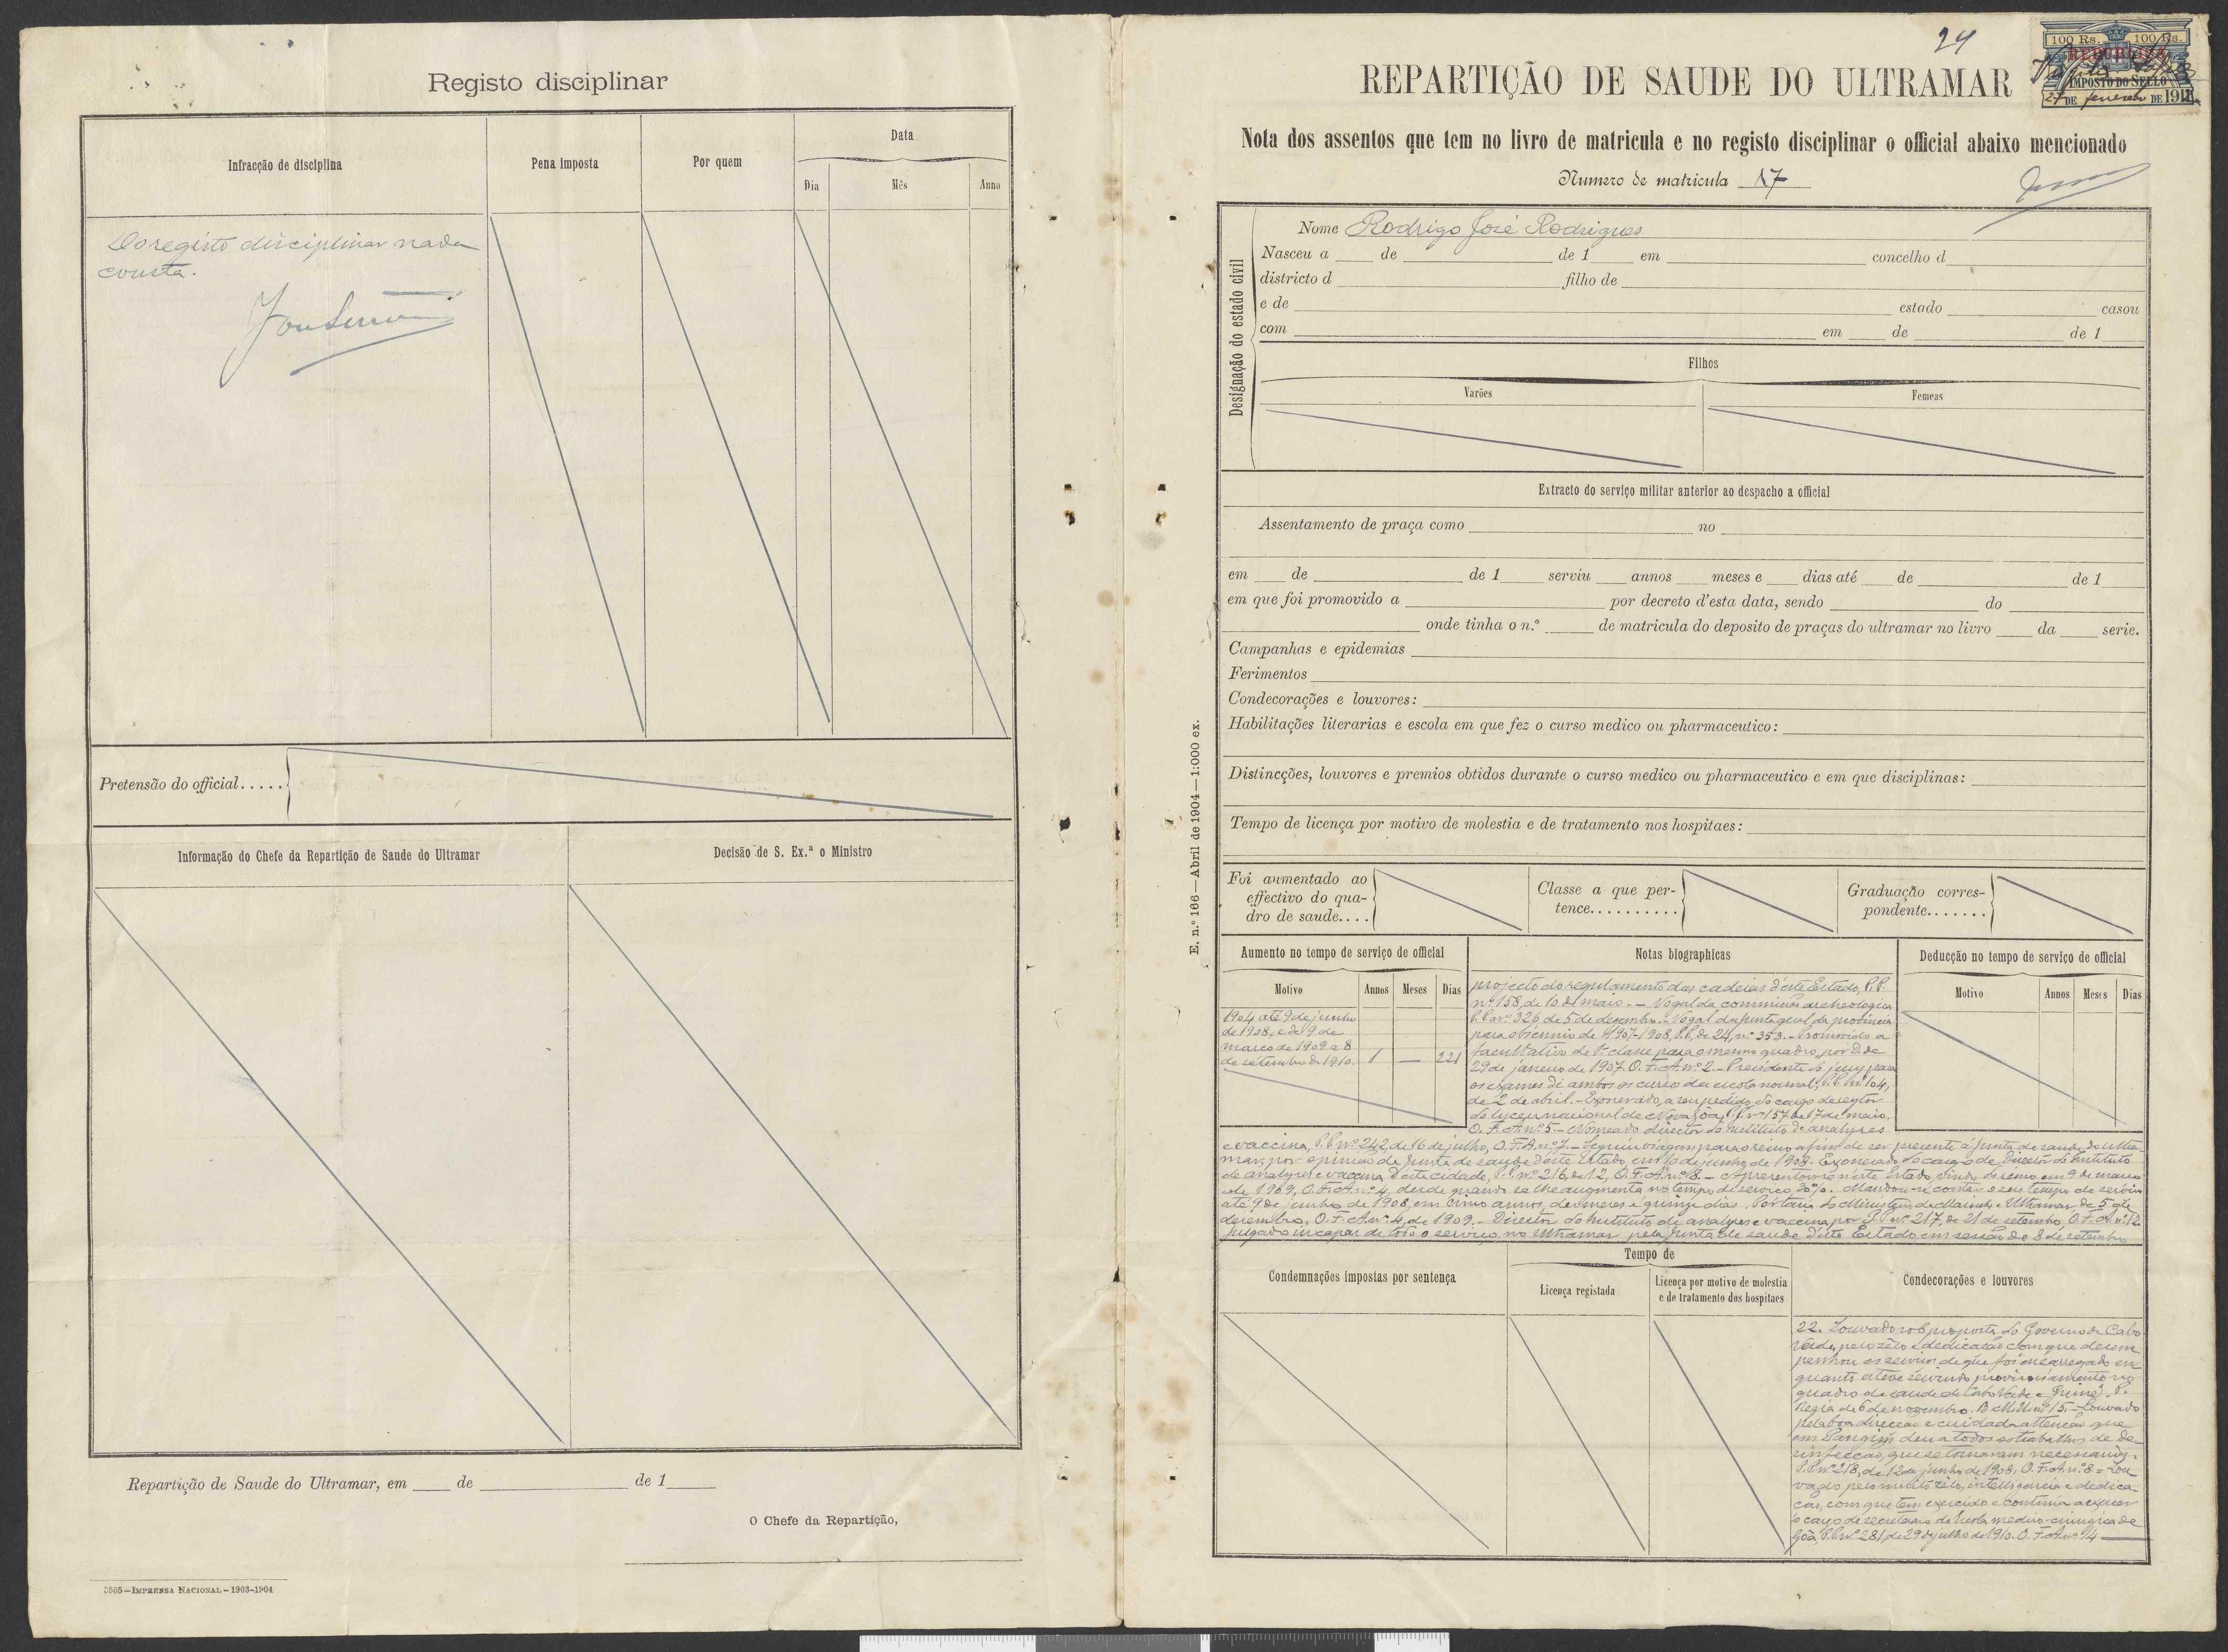 Registo disciplinar
Infracção de disciplina
Pena imposta
Por quem
Data
Dia
Mês
Anno
Do registo disciplinar nada
consta.
Pretensão do official.....
Informação do Chefe da Repartição de Saude do Ultramar
Decisão de S. Ex.ª o Ministro
Repartição de Saude do Ultramar, em ____ de ____ de 1____
O Chefe da Repartição,
3505—IMPRENSA NACIONAL—1903-1904
24
100 Rs. 100 Rs.
REPUBLICA
IMPOSTO DO SELLO
27 DE fevereiro DE 1911
REPARTIÇÃO DE SAUDE DO ULTRAMAR
Nota dos assentos que tem no livro de matricula e no registo disciplinar o official abaixo mencionado
Numero de matricula 17
Designação do estado civil
Nome Rodrigo José Rodrigues
Nasceu a ____ de ____ de 1____ em ____ concelho d____
districto d____ filho de ____
e de ____ estado ____ casou
com ____ em ____ de ____ de 1____
Filhos
Varões
Femeas
Extracto do serviço militar anterior ao despacho a official
Assentamento de praça como ____ no ____
em ____ de ____ de 1____ serviu ____ annos ____ meses e ____ dias até ____ de ____ de 1
em que foi promovido a ____ por decreto d'esta data, sendo ____ do ____
____ onde tinha o n.º ____ de matricula do deposito de praças do ultramar no livro ____ da ____ serie.
Campanhas e epidemias
Ferimentos
Condecorações e louvores:
Habilitações literarias e escola em que fez o curso medico ou pharmaceutico:
Distincções, louvores e premios obtidos durante o curso medico ou pharmaceutico e em que disciplinas:
Tempo de licença por motivo de molestia e de tratamento nos hospitaes:
E. n.º 166—Abril de 1904—1:000 ex.
Foi aumentado ao
effectivo do qua-
dro de saude....
Classe a que per-
tence..........
Graduação corres-
pondente.......
Aumento no tempo de serviço de official
Motivo
Annos
Meses
Dias
1904 até 9 de junho
de 1908, e de 9 de
março de 1909 a 8
de setembro de 1910. 1 — 221
Notas biographicas
projecto do regulamento das cadeias d'este Estado, P.P.
nº 158, de 10 de maio. — Vogal da commissão archeologica
P.P. nº 326 de 5 de dezembro. — Vogal da junta geral da provincia
para o biennio de 1907-1908, P.P. de 24, nº 353. — Promovido a
facultativo de 1ª classe para o mesmo quadro por D. de
29 de janeiro de 1907. O.F.A. nº 2. — Presidente do jury para
os exames de ambos os cursos da escola normal, P.P. nº 104,
de 2 de abril. — Exonerado, a seu pedido, do cargo de reytor
do lyceu nacional de Nova Goa, P.P. nº 157 de 17 de maio.
O.F.A. nº 5. — Nomeado director do Instituto de analyses
Deducção no tempo de serviço de official
Motivo
Annos
Meses
Dias
e vaccina, P.P. nº 242, de 16 de julho, O.F.A. nº 7. — Seguiu viagem para o reino afim de ser presente á junta de saude do ultra-
mar, por opinião da junta de saude d'este Estado, em 10 de junho de 1908. Exonerado do cargo de Director do Instituto
de analyses e vaccina d'esta cidade, P.P. nº 216, de 12, O.F.A. nº 8. — Apresentou-se n'este Estado, vindo do reino em 9 de março
de 1909, O.F.A. nº 4, desde quando se lhe augmenta no tempo de serviço 20%. Mandou-se contar o seu tempo de serviço
até 9 de junho de 1908, em cinco annos, dez mezes e quinze dias. Portaria do Ministerio da Marinha e Ultramar, de 5 de
dezembro, O.F.A. nº 4, de 1909. — Director do Instituto de analyses e vaccina, por P.P. nº 217, de 21 de setembro, O.F.A. nº 12
Julgado incapaz de todo o serviço no Ultramar pela junta de saude d'este Estado em sessão de 8 de setembro
Condemnações impostas por sentença
Tempo de
Licença registada
Licença por motivo de molestia
e de tratamento dos hospitaes
Condecorações e louvores
22. Louvado sob proposta do Governo de Cabo
Verde, pelo zêlo e dedicação com que desem-
penhou os serviços de que foi encarregado en-
quanto esteve servindo provisoriamente no
quadro de saude de Cabo Verde e Guiné. P.
Regia de 6 de novembro. B.M.U. nº 15. — Louvado
pela boa direcção e cuidada attenção que
em Pangim deu a todos os trabalhos de de-
sinfecção, que se tornaram necessarios.
P.P. nº 218, de 12 de junho de 1908. O.F.A. nº 8 = Lou-
vado pelo muito zêlo, intelligencia e dedica-
ção, com que tem exercido e continúa a exercer
o cargo de secretario da Escola medico-cirurgica de
Goa, P.P. nº 281, de 29 de julho de 1910. O.F.A. nº 14